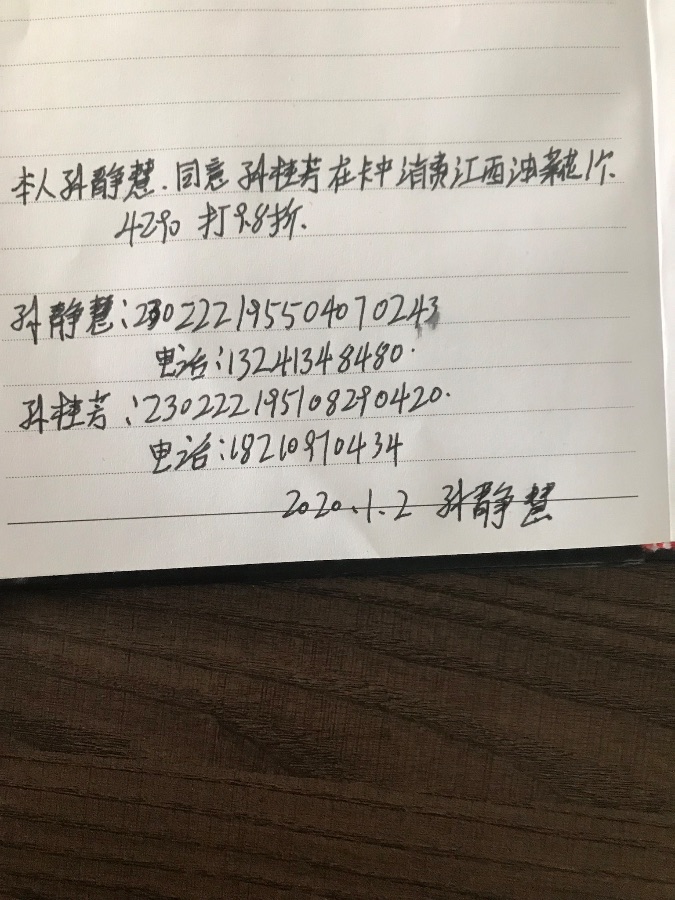 本人孙静慧.同意孙桂芳在卡中消费江西油菜花1个.
4290 打9.8折.
孙静慧:230222195504070243
电话:13241348480.
孙桂芳:230222195108290420.
电话:18210970434
2020.1.2 孙静慧